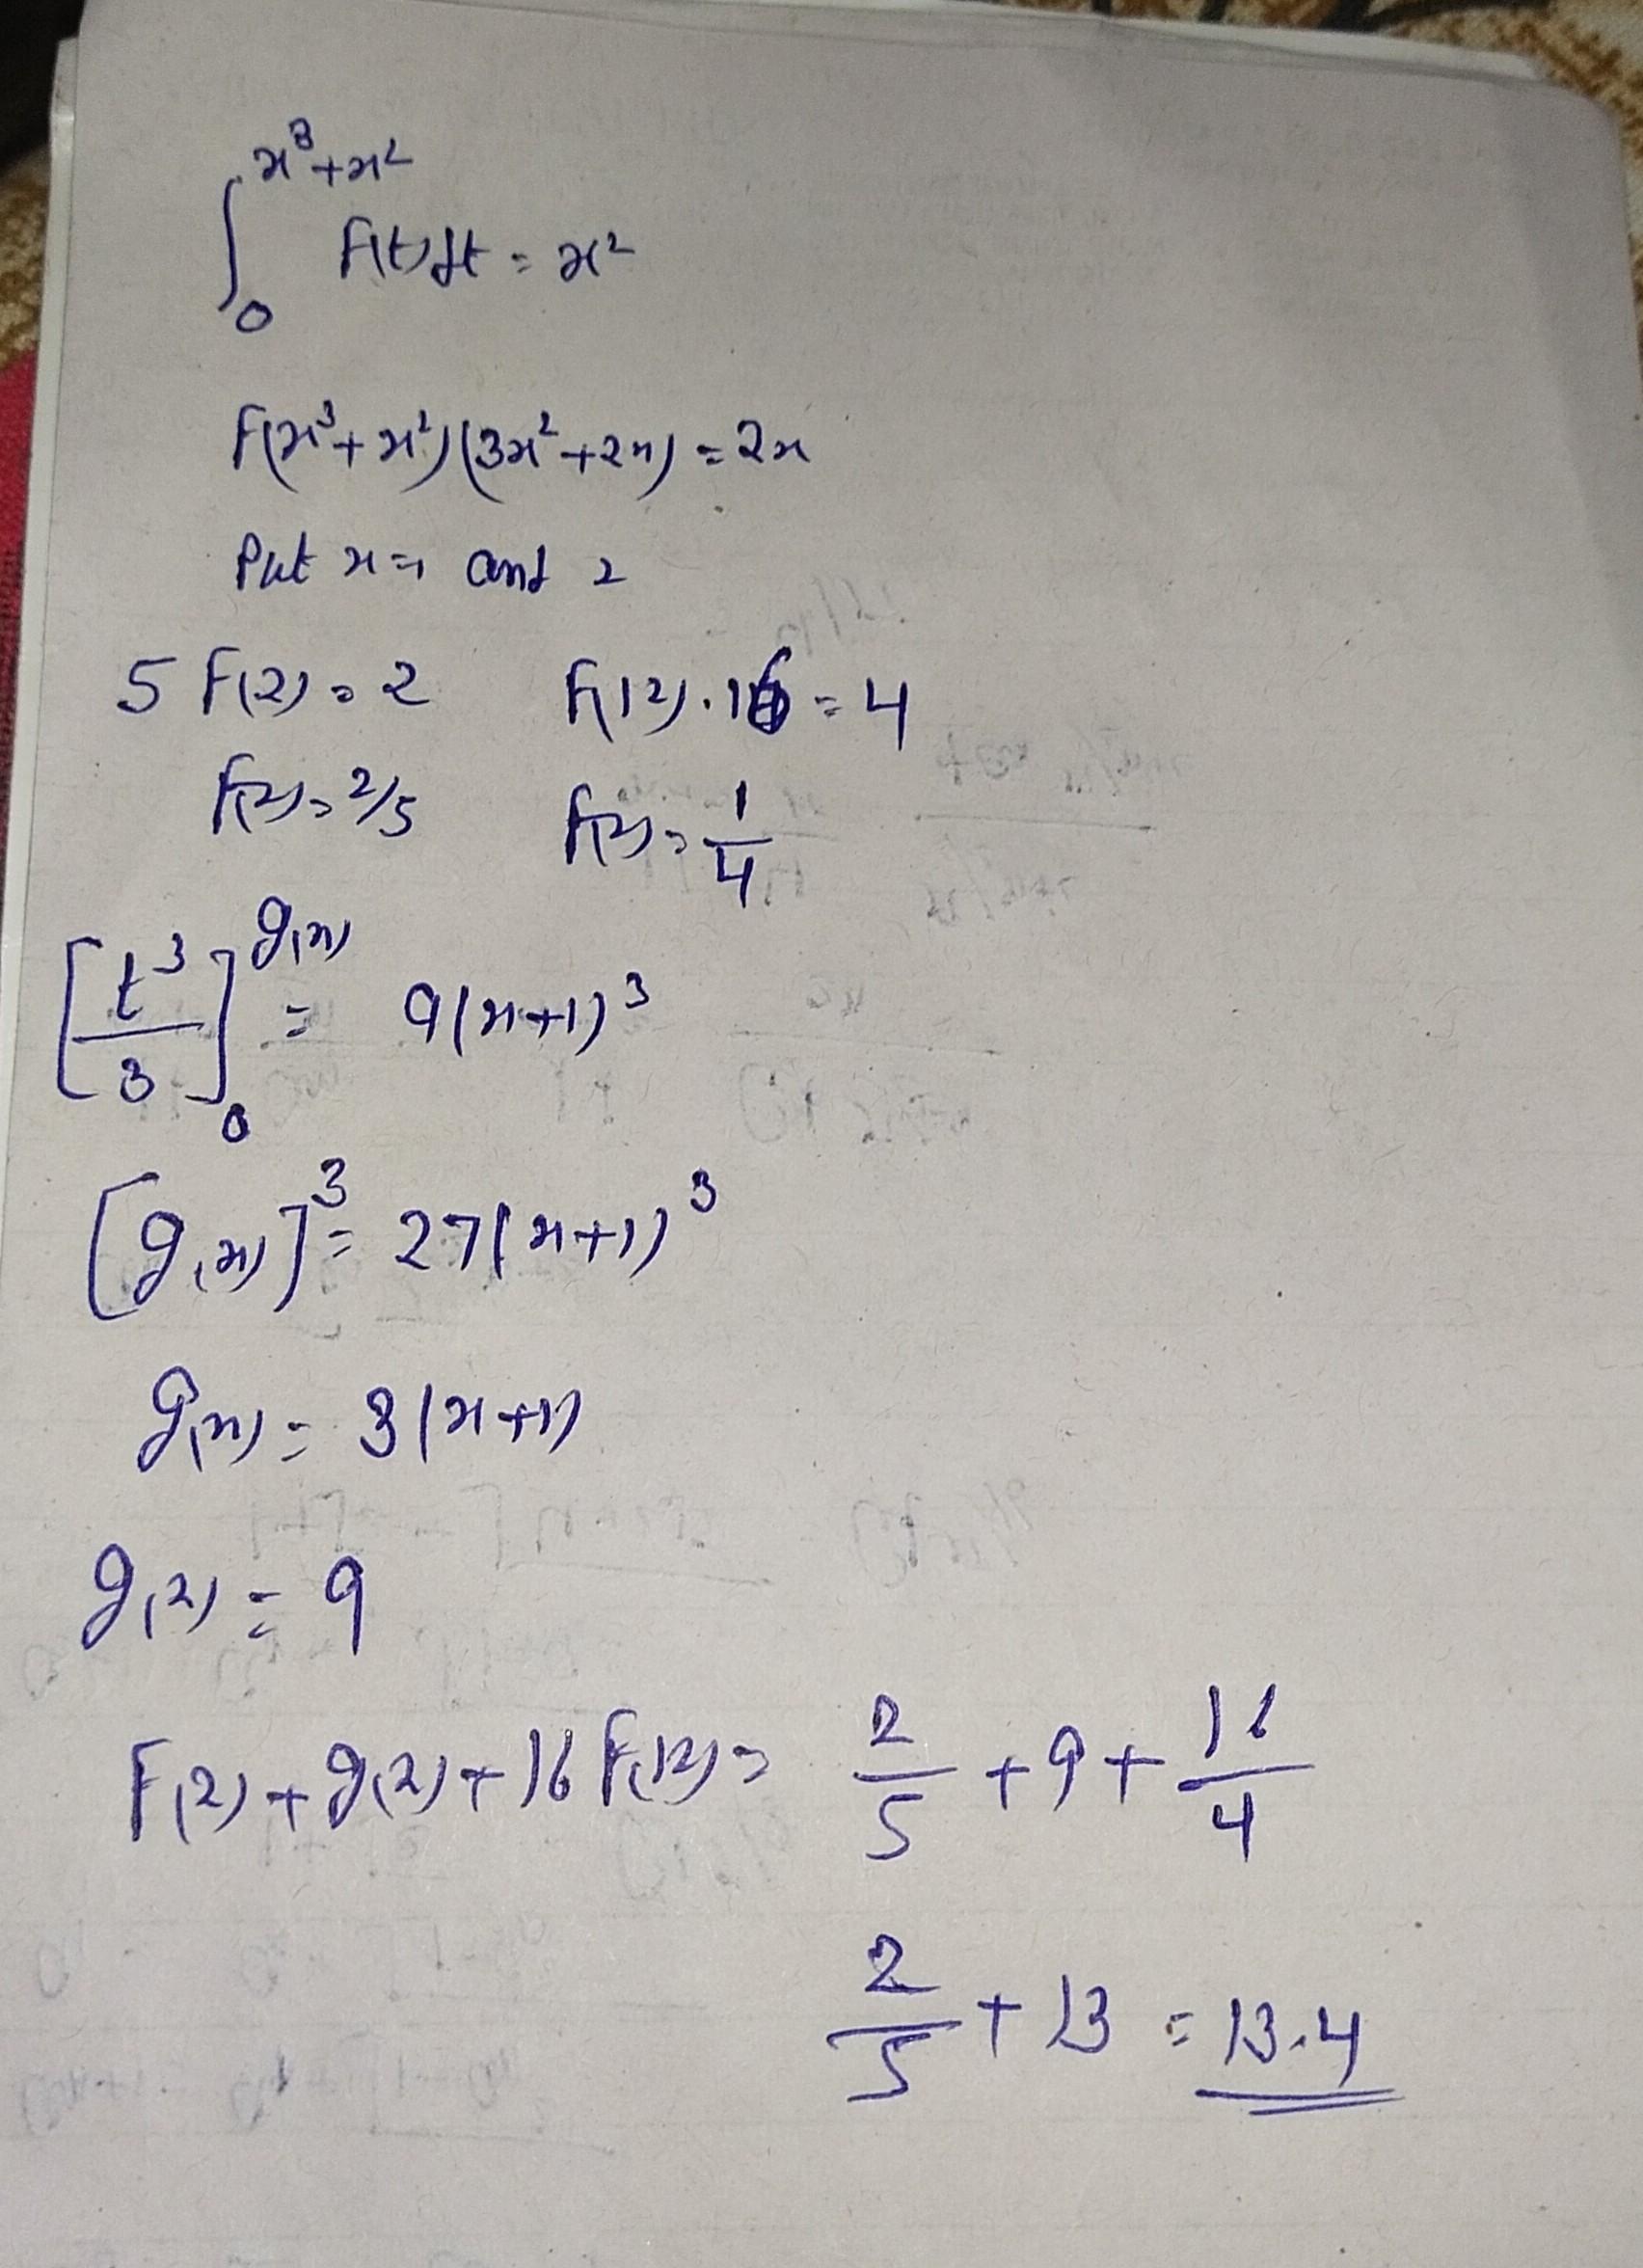 ∫₀^(x³+x²) F(t)dt = x²
F(x³+x²)(3x²+2x) = 2x
Put x=1 and 2
5 F(2) = 2 F(12).16 = 4
F(2) = 2/5 F(2) = 1/4
[t³/3]₀^g(x) = 9(x+1)³
[g(x)]³ = 27(x+1)³
g(x) = 3(x+1)
g(2) = 9
F(2) + g(2) + 16 F(12) = 2/5 + 9 + 16/4
2/5 + 13 = 13.4